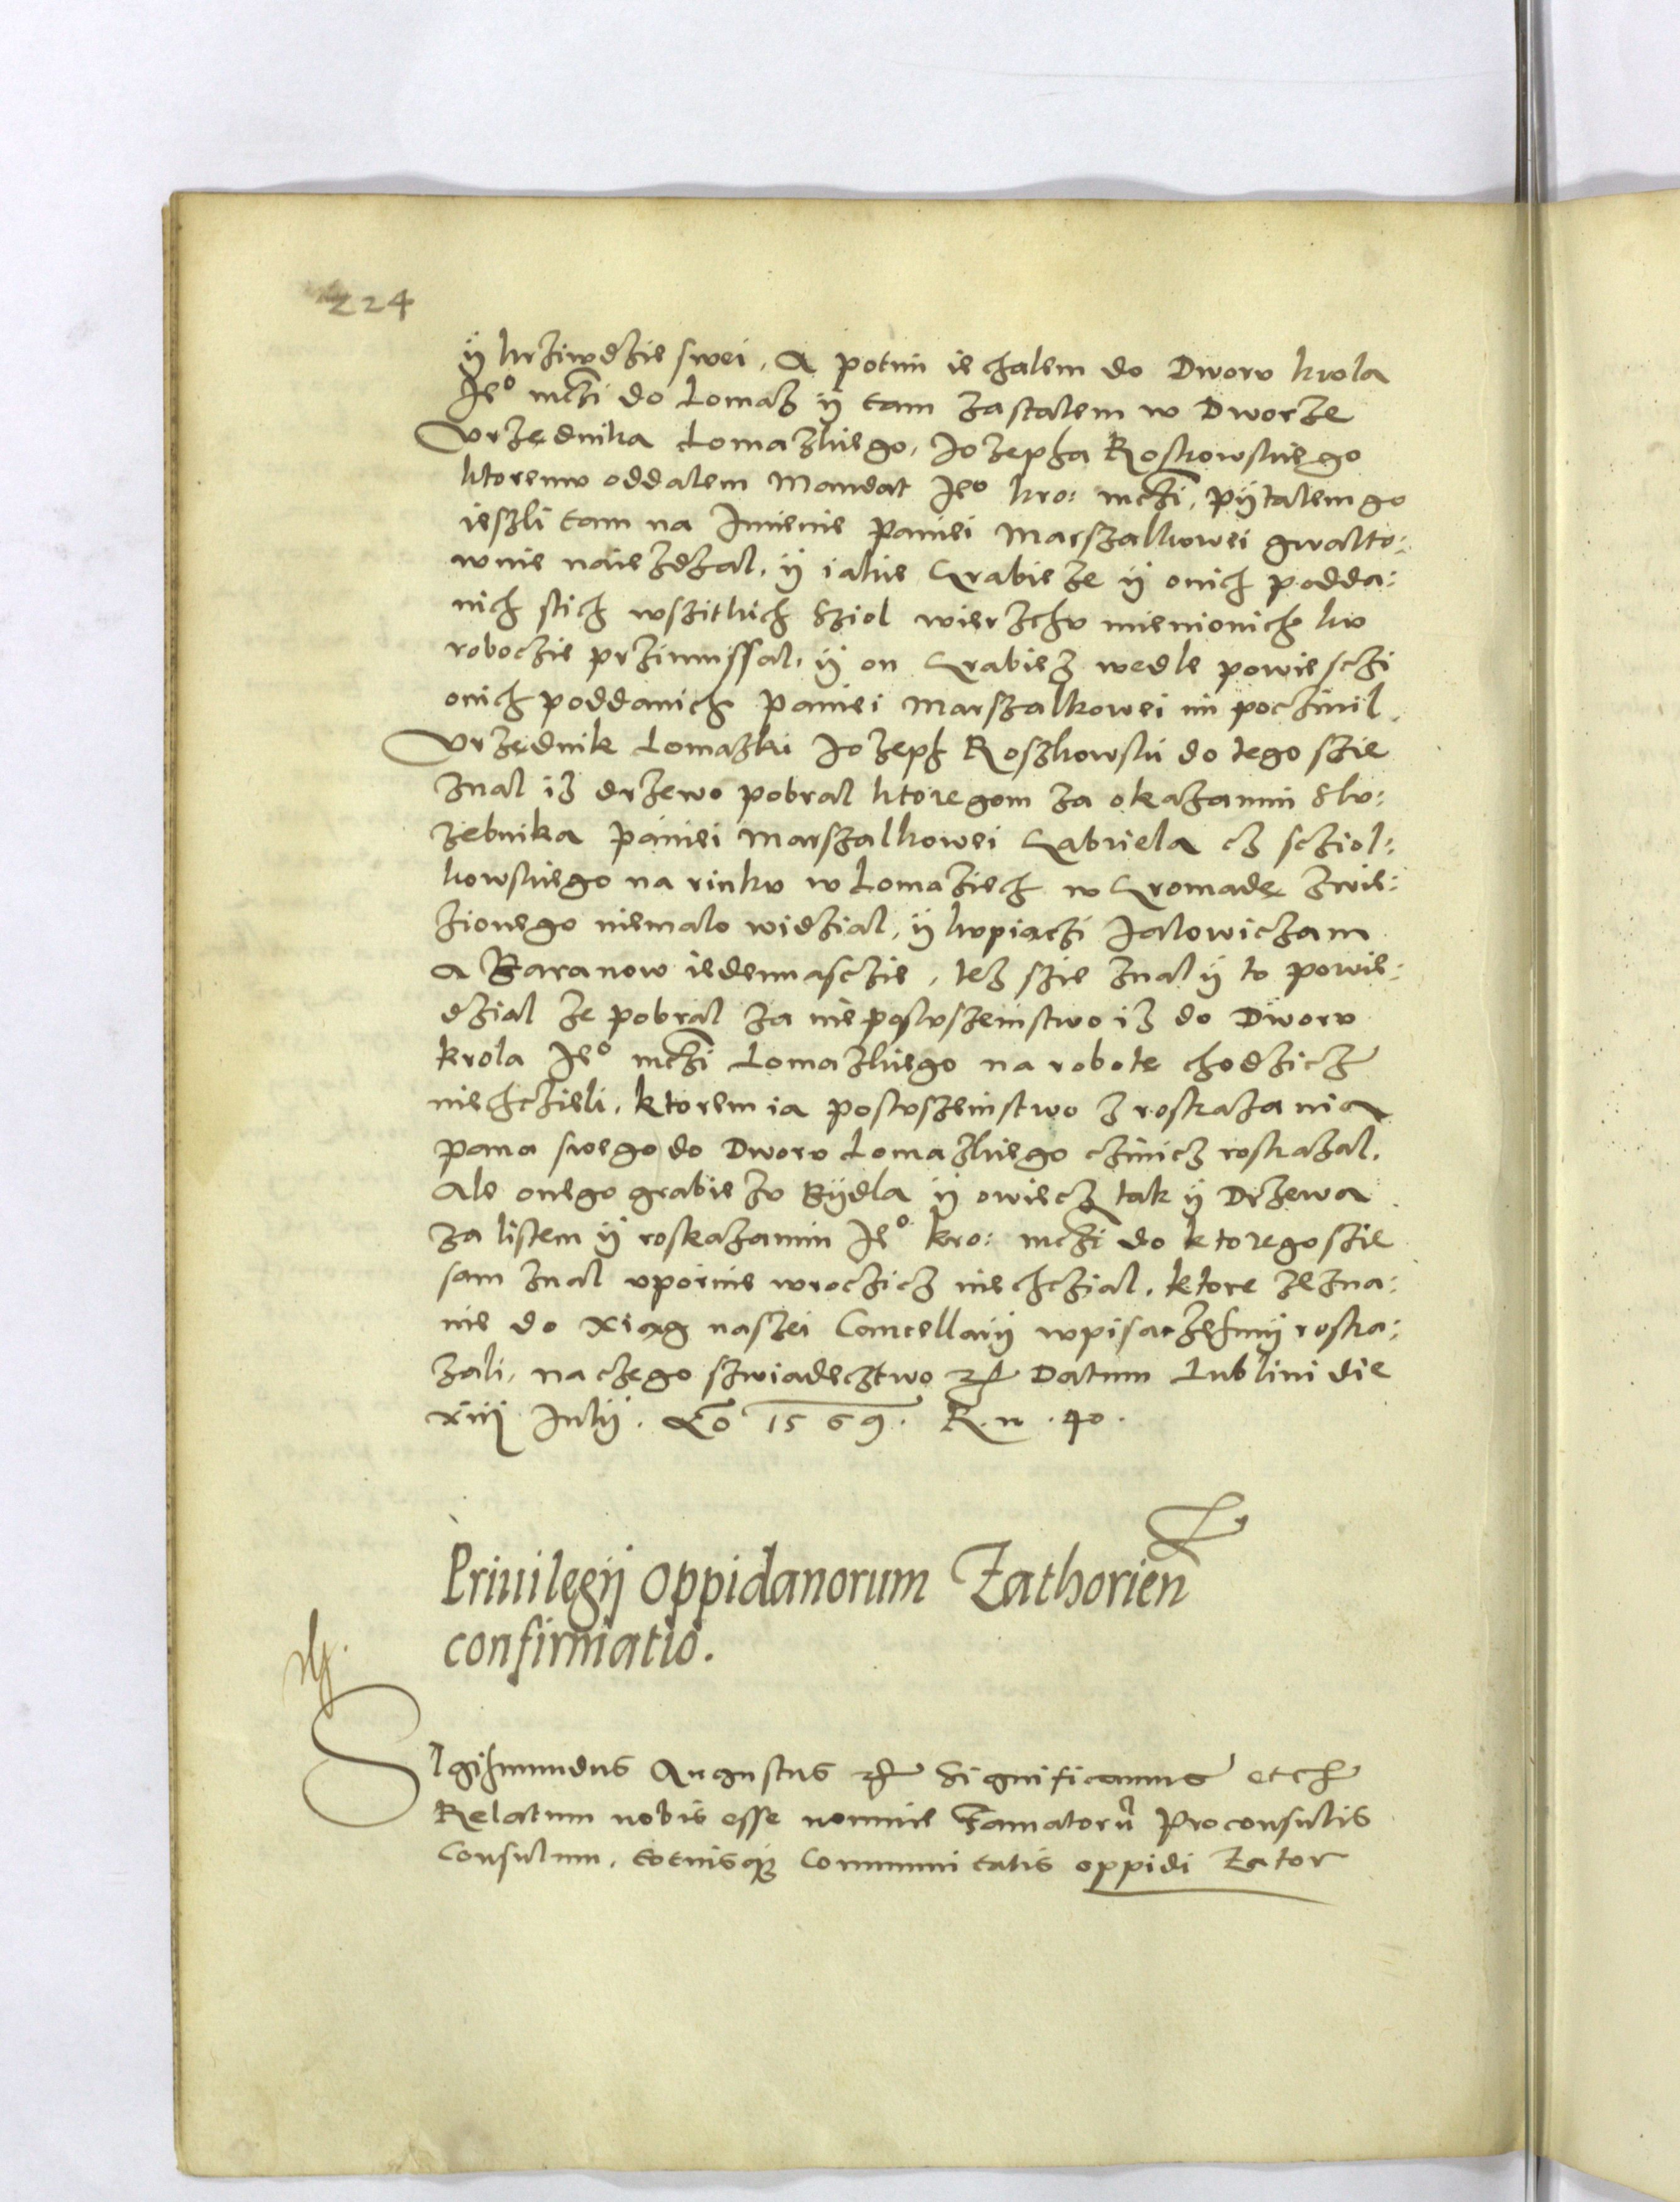 224
ÿ krziwdzie swei, A potim iechalem do Dworu krola
Je⁰ mczi do Lomaz ÿ tam zastalem w Dworze
Vrzędnika Lomazkiego, Jozepha Roskowskiego
ktoremu oddalem Mandat Je⁰ kro: mczi, pÿtalem go
ieszli tam na Imienie paniei Marszalkowei gwalto:
wnie naiezdzal, ÿ iakie Grabieze ÿ onich podda:
nich stich wszitkich Sziol wierzchu mienionich ku
roboczie przimussal, ÿ on Grabiez wedle powiesczi
onich poddanich paniei Marszalkowei im poczinil
Vrzędnik Lomazki Jozeph Roszkowski do tego szie
znal iz drzewo pobral ktoregom za okazanim Slu:
zebnika paniei Marszalkowei Gabriela cz scziol:
kowskiego na rinku w Lomaziech w Gromadę zwie:
zionego niemalo widzial, ÿ kupiaczi Jalowiczam
a Baranow iedennasczie, tez szie znal ÿ to powie:
dzial ze pobral za nie poslvszenstwo iz do Dworu
krola Je⁰ mczi Lomazkiego na robote chodzicz
niechczieli, ktorem ia poslvszeinstwo z roskazania
pana swego do Dworu Lomazkiego czinicz roskazal,
Ale onego grabiezu Bÿdla ÿ owiecz tak ÿ Drzewa
za listem ÿ roskazanim Je⁰ kro: mczi do ktorego szie
sam znal vpornie wroczicz niechczial, ktore zezna:
nie do xiąg naszei Cancellariÿ wpisac zesmÿ roska:
zali, na czego szwiadecztwo etc Datum Lublini die
xiiij Julÿ. A⁰ 1569. R. n. 40.
Priuilegij oppidanorum Zathorien
confirmatio.
Sigismundus Augustus etc Significamus etc
Relatum nobis esse nomine Famatorū Proconsulis
Consulum, totiusq; Communitatis oppidi Zator